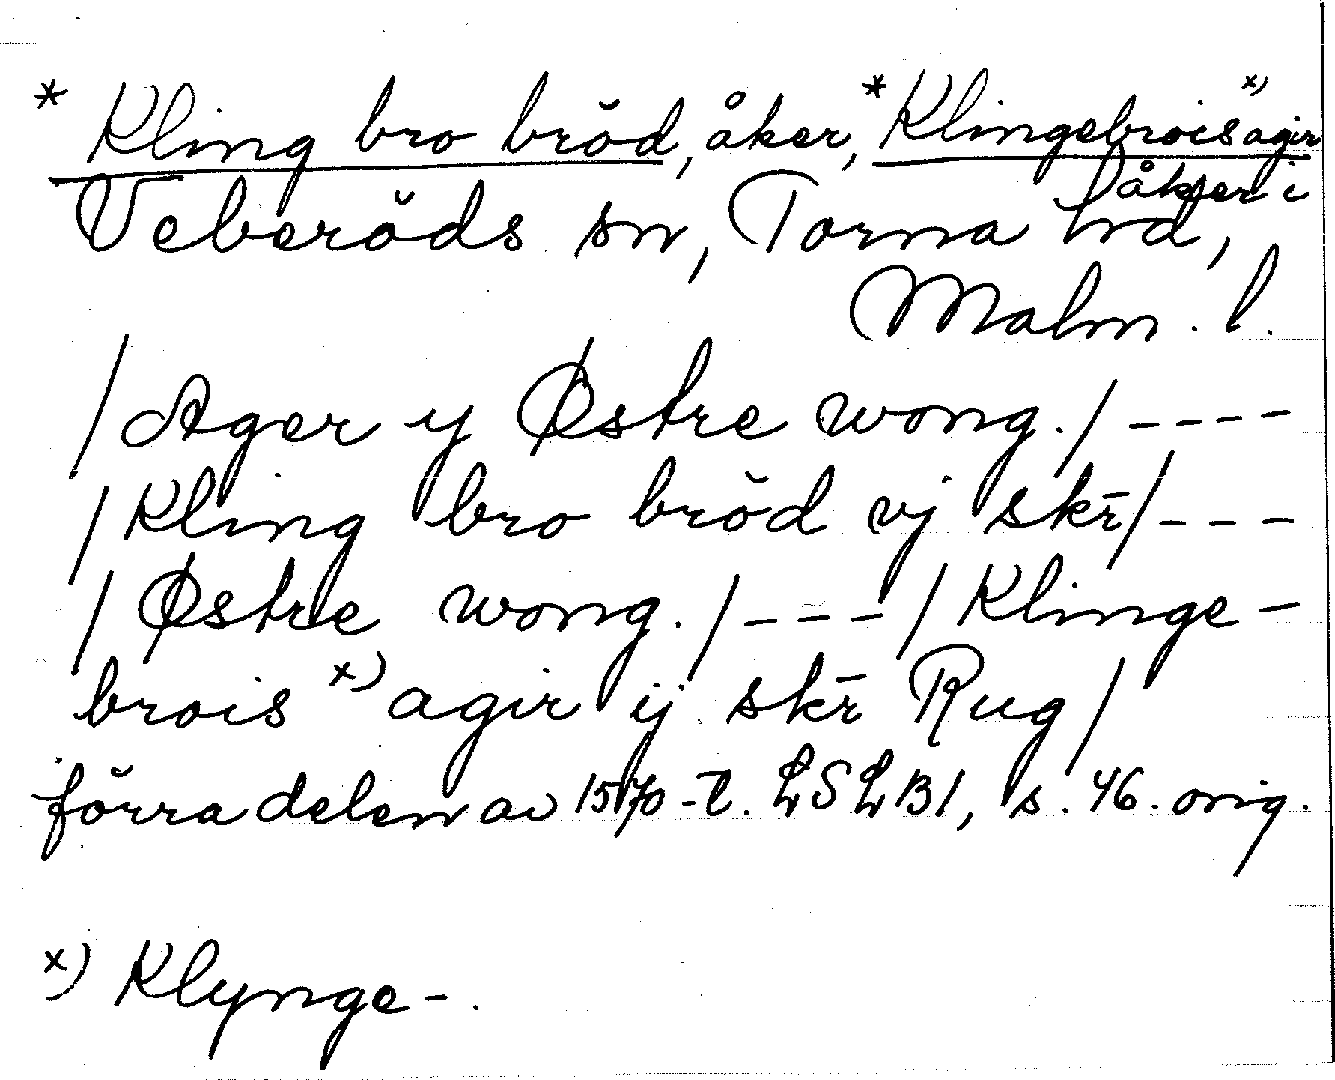 * Kling bro brŏd, åker, *Klingebrois x) agir
åker i
Veberöds sn, Torna hd,
Malm. l.
/Ager y Østre wong./----
/Kling bro brŏd vj skr̄/---
/Østre wong./---/Klinge-
brois x) agir ij skr̄ Rug/
förra delen av 1570-t. LSLB1, s. 46. orig.
x) Klynge-.